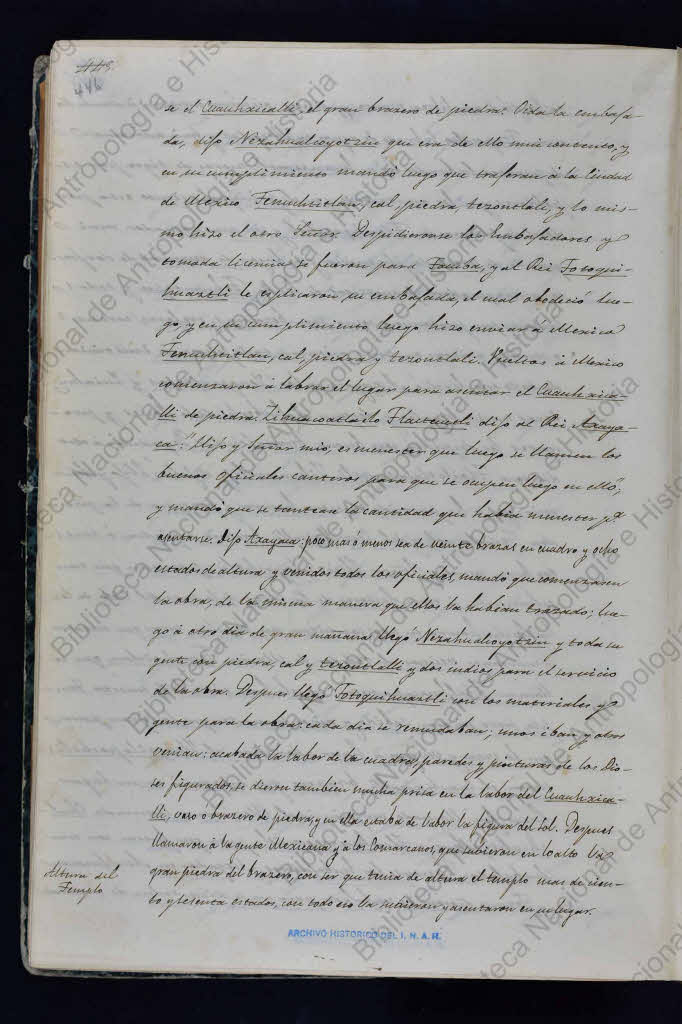 445
446
se el Cuauhxicalli, el gran brazero de piedra. Oida la embaja-
da, dijo Nezahualcoyotzin que era de ello mui contento, y
en su cumplimiento mandó luego que trajeran á la Ciudad
de Mexico Tenuchtitlan, cal, piedra, tezontlali, y lo mis-
mo hizo el otro Señor. Despidieronse los Embajadores y
tomada licencia se fueron para Tacuba, y al Rei Totoqui-
huaztli le esplicaron su embajada, el cual obedeció lue-
go, y en su cumplimiento luego hizo enviar á Mexico
Tenuchtitlan, cal, piedra y tezontlali. Vueltos á Mexico
comenzaron á labrar el lugar para asentar el Cuauhxica-
lli de piedra. Zihuacoatl dijo al Rei Axaya-
ca: "Hijo y Señor mio, es menester que luego se llamen los
buenos oficiales canteros para que se ocupen luego en ello",
y mandó que se tantear la cantidad que habia menester pª
asentarse. Dijo Axayaca: poco mas ó menos sea de veinte brazas en cuadro y ocho
estados de altura y venidos todos los oficiales, mandó que comenzasen
la obra, de la misma manera que ellos la habian trazado; lue-
go á otro dia de gran mañana llegó Nezahualcoyotzin y toda su
gente con piedra, cal y tezontlalli y dos indios para el servicio
de la obra. Despues llegó Totoquihuaztli con los materiales y
gente para la obra: cada dia se remudaban; unos iban y otros
venian: acabada la labor de la cuadra, paredes y pinturas de los Dio-
ses figurados, se dieron tambien mucha prisa en la labor del Cuauhxica-
lli, vaso ó brazero de piedra, y en ella estaba de labor la figura del Sol. Despues
llamaron á la gente Mexicana y á los Comarcanos, que subieron en lo alto la
gran piedra del brazero, con ser que tenia de altura el templo mas de cien-
to y sesenta estados, con todo eso la subieron y asentaron en su lugar.
Altura del
Templo
ARCHIVO HISTORICO DEL I. N. A. H.
Biblioteca Nacional de Antropología e Historia